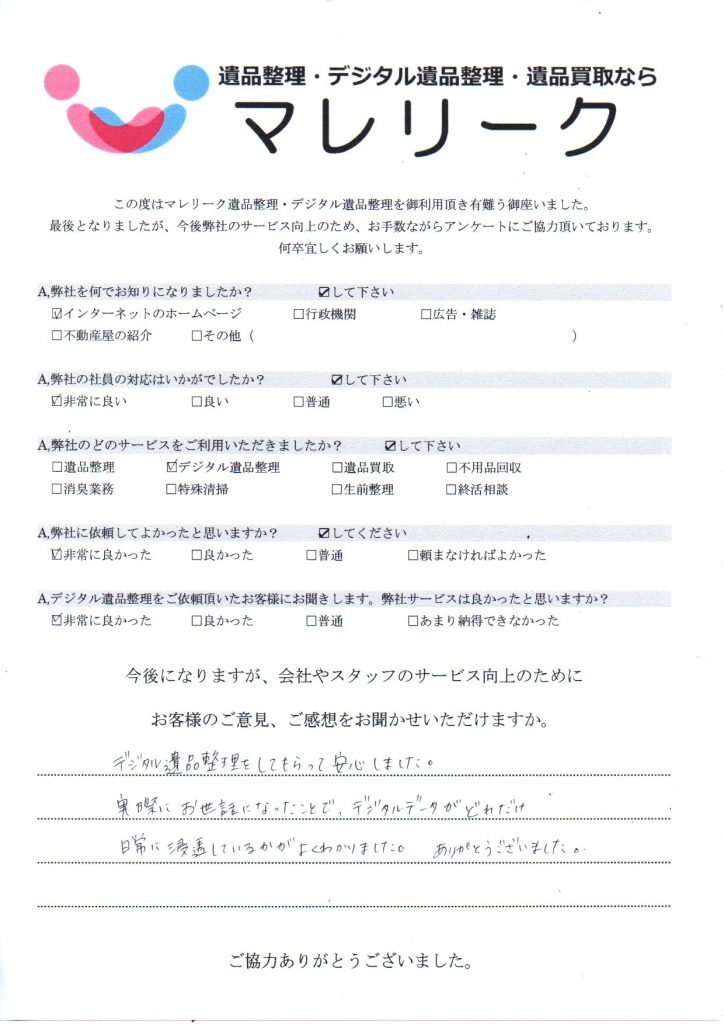 遺品整理・デジタル遺品整理・遺品買取なら
マレリーク
この度はマレリーク遺品整理・デジタル遺品整理を御利用頂き有難う御座いました。
最後となりましたが、今後弊社のサービス向上のため、お手数ながらアンケートにご協力頂いております。
何卒宜しくお願いします。
A,弊社を何でお知りになりましたか? ☑して下さい
☑インターネットのホームページ □行政機関 □広告・雑誌
□不動産屋の紹介 □その他( )
A,弊社の社員の対応はいかがでしたか? ☑して下さい
☑非常に良い □良い □普通 □悪い
A,弊社のどのサービスをご利用いただきましたか? ☑して下さい
□遺品整理 ☑デジタル遺品整理 □遺品買取 □不用品回収
□消臭業務 □特殊清掃 □生前整理 □終活相談
A,弊社に依頼してよかったと思いますか? ☑してください
☑非常に良かった □良かった □普通 □頼まなければよかった
A,デジタル遺品整理をご依頼頂いたお客様にお聞きします。弊社サービスは良かったと思いますか?
☑非常に良かった □良かった □普通 □あまり納得できなかった
今後になりますが、会社やスタッフのサービス向上のために
お客様のご意見、ご感想をお聞かせいただけますか。
デジタル遺品整理をしてもらって安心しました。
実際にお世話になったことで、デジタルデータがどれだけ
日常に浸透しているかがよくわかりました。 ありがとうございました。
ご協力ありがとうございました。